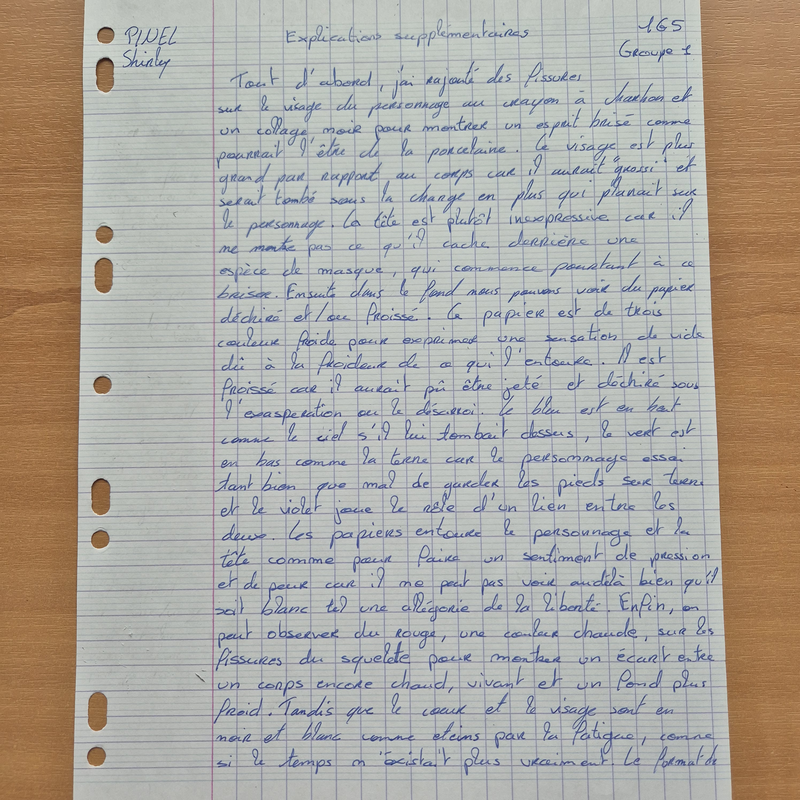 PINEL
Shirley
Explications supplémentaires
1G5
Groupe 1
Tout d'abord, j'ai rajouté des fissures
sur le visage du personnage au crayon à charbon et
un collage noir pour montrer un esprit brisé comme
pourrait l'être de la porcelaine. Le visage est plus
grand par rapport au corps car il aurait "grossi" et
serait tombé sous la charge en plus qui planait sur
le personnage. La tête est plutôt inexpressive car il
ne montre pas ce qu'il cache derrière une
espèce de masque, qui commence pourtant à ce
briser. Ensuite dans le fond nous pouvons voir du papier
déchiré et/ou froissé. Ce papier est de trois
couleur froide pour exprimer une sensation de vide
dû à la froideur de ce qui l'entoure. Il est
froissé car il aurait pû être jeté et déchiré sous
l'exaspération ou le désarroi. Le bleu est en haut
comme le ciel s'il lui tombait dessus, le vert est
en bas comme la terre car le personnage essai
tant bien que mal de garder les pieds sur terre
et le violet joue le rôle d'un lien entre les
deux. Les papiers entoure le personnage et la
tête comme pour faire un sentiment de pression
et de peur car il ne peut pas voir audelà bien qu'il
soit blanc tel une allégorie de la liberté. Enfin, on
peut observer du rouge, une couleur chaude, sur les
fissures du squelette pour montrer un écart entre
un corps encore chaud, vivant et un fond plus
froid. Tandis que le coeur et le visage sont en
noir et blanc comme eteins par la fatigue, comme
si le temps n'existait plus vraiment. Le format de